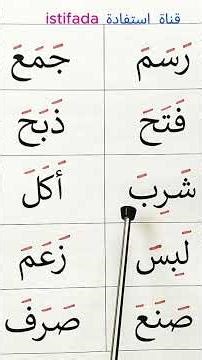 قناة استفادة istifada
رَسَمَ جَمَعَ
فَتَحَ ذَبَحَ
شَرِبَ أَكَلَ
لَبِسَ زَعَمَ
صَنَعَ صَرَفَ